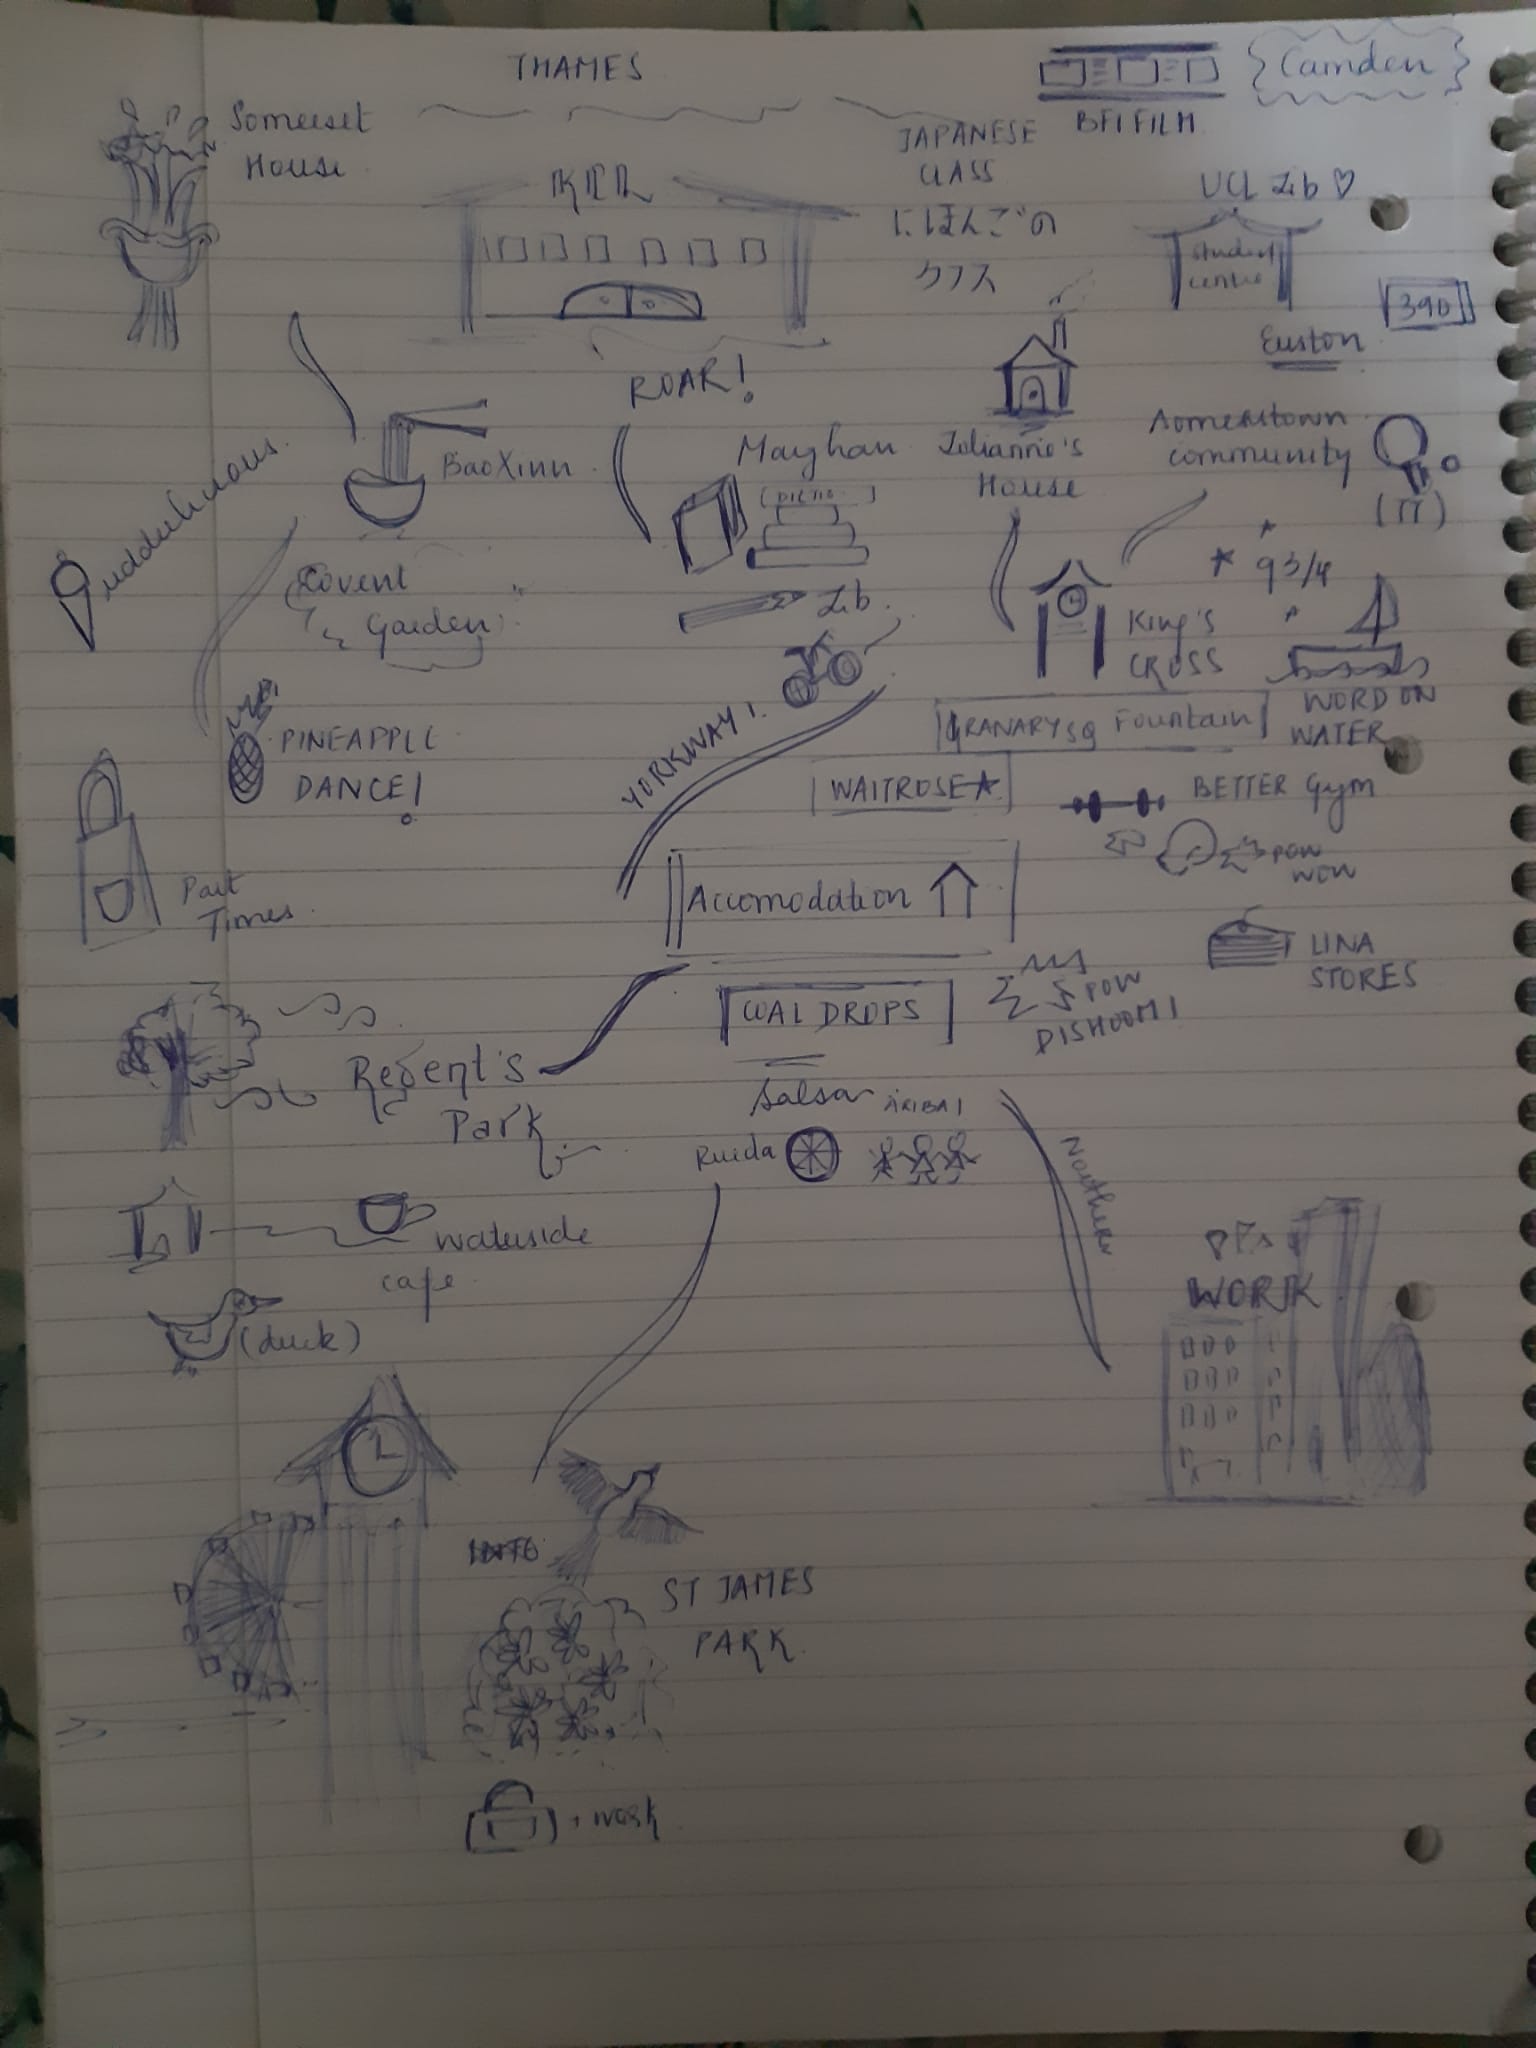 THAMES
Camden
BFI FILM
Somerset
House
KCL
JAPANESE
CLASS
にほんごの
クラス
UCL Lib ♡
Student
centre
390
Euston
ROAR!
BaoXinn
Maughan
Lib.
Julianne's
House
Somerstown
community
(TT)
Covent
Garden
9 3/4
King's
CROSS
WORD ON
WATER
PINEAPPLE
DANCE!
YORKWAY!
GRANARY SQ Fountain
WAITROSE
BETTER Gym
POW
WOW
Part
Times
Accomodation
LINA
STORES
COAL DROPS
POW
DISHOOM!
Regent's
Park
Salsa ARIBA!
Ruida
Northern
waterside
cafe
(duck)
WORK
ST JAMES
PARK
+ work